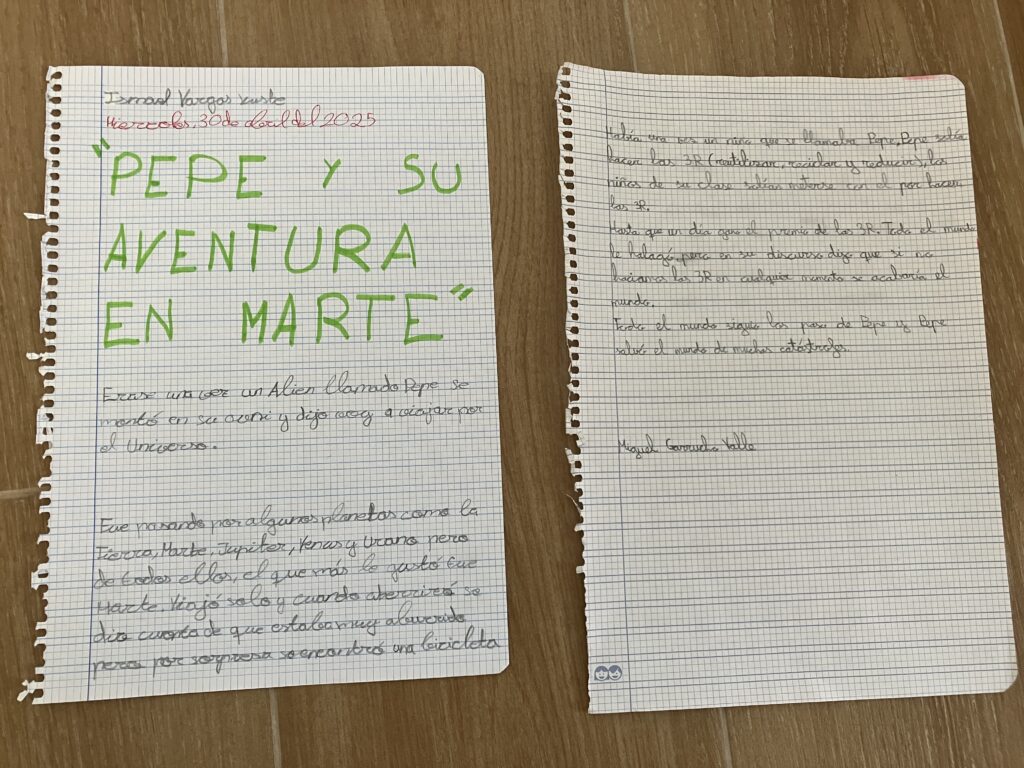 Ismael Vargas Yuste
Miercoles, 30 de abril del 2025
"PEPE Y SU
AVENTURA
EN MARTE"
Erase una vez un Alien llamado Pepe se
montó en su ovni y dijo voy a viajar por
el Universo.
Fue pasando por algunos planetas como la
Tierra, Marte, Jupiter, Venus y Urano pero
de todos ellos, el que más le gustó fue
Marte. Viajó solo y cuando aterrizó se
dio cuenta de que estaba muy aburrido
pero por sorpresa se encontró una bicicleta
Había una vez un niño que se llamaba Pepe, Pepe solía
hacer las 3R (reutilizar, reciclar y reducir), los
niños de su clase solían meterse con el por hacer
las 3R.
Hasta que un día ganó el premio de las 3R. Todo el mundo
le halagó, pero en su discurso dijo que si no
hacíamos las 3R en cualquier momento se acabaría el
mundo.
Todo el mundo siguio los paso de Pepe y Pepe
salvó el mundo de muchas catástrofes.
Miguel Garrucho Valle